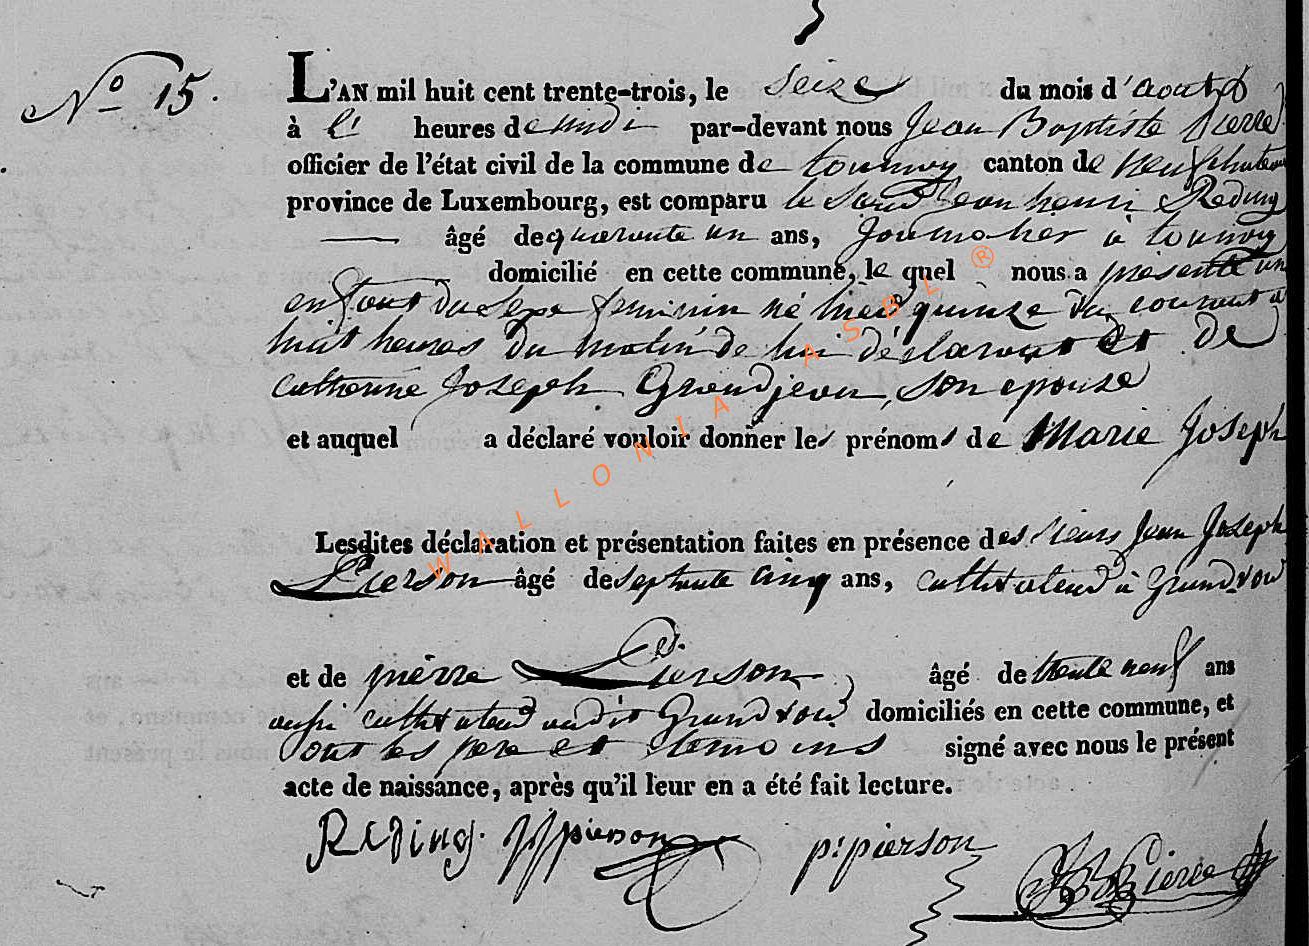 N° 15.
L'AN mil huit cent trente-trois, le seize du mois d'aout
à heures de midi par-devant nous Jean Baptiste pierre
officier de l'état civil de la commune de tournay canton de neufchateau
province de Luxembourg, est comparu le Sieur Jean henri Reding
âgé de quarente un ans, Journalier à tournay
domicilié en cette commune, le quel nous a présenté un
enfant du Sexe feminin né hier quinze du courant à
huit heures du matin de lui déclarant et de
catherine Joseph Grandjean, son epouse
et auquel a déclaré vouloir donner les prénoms de Marie Joseph
Lesdites déclaration et présentation faites en présence des sieurs Jean Joseph
Pierson âgé de septante cinq ans, cultivateur à Grandvoir
et de pierre Pierson âgé de trente neuf ans
aussi cultivateur audit Grandvoir domiciliés en cette commune, et
ont les pere et temoins signé avec nous le présent
acte de naissance, après qu'il leur en a été fait lecture.
Reding. JJ pierson p: pierson JB Pierre
WALLONIA ASBL ®